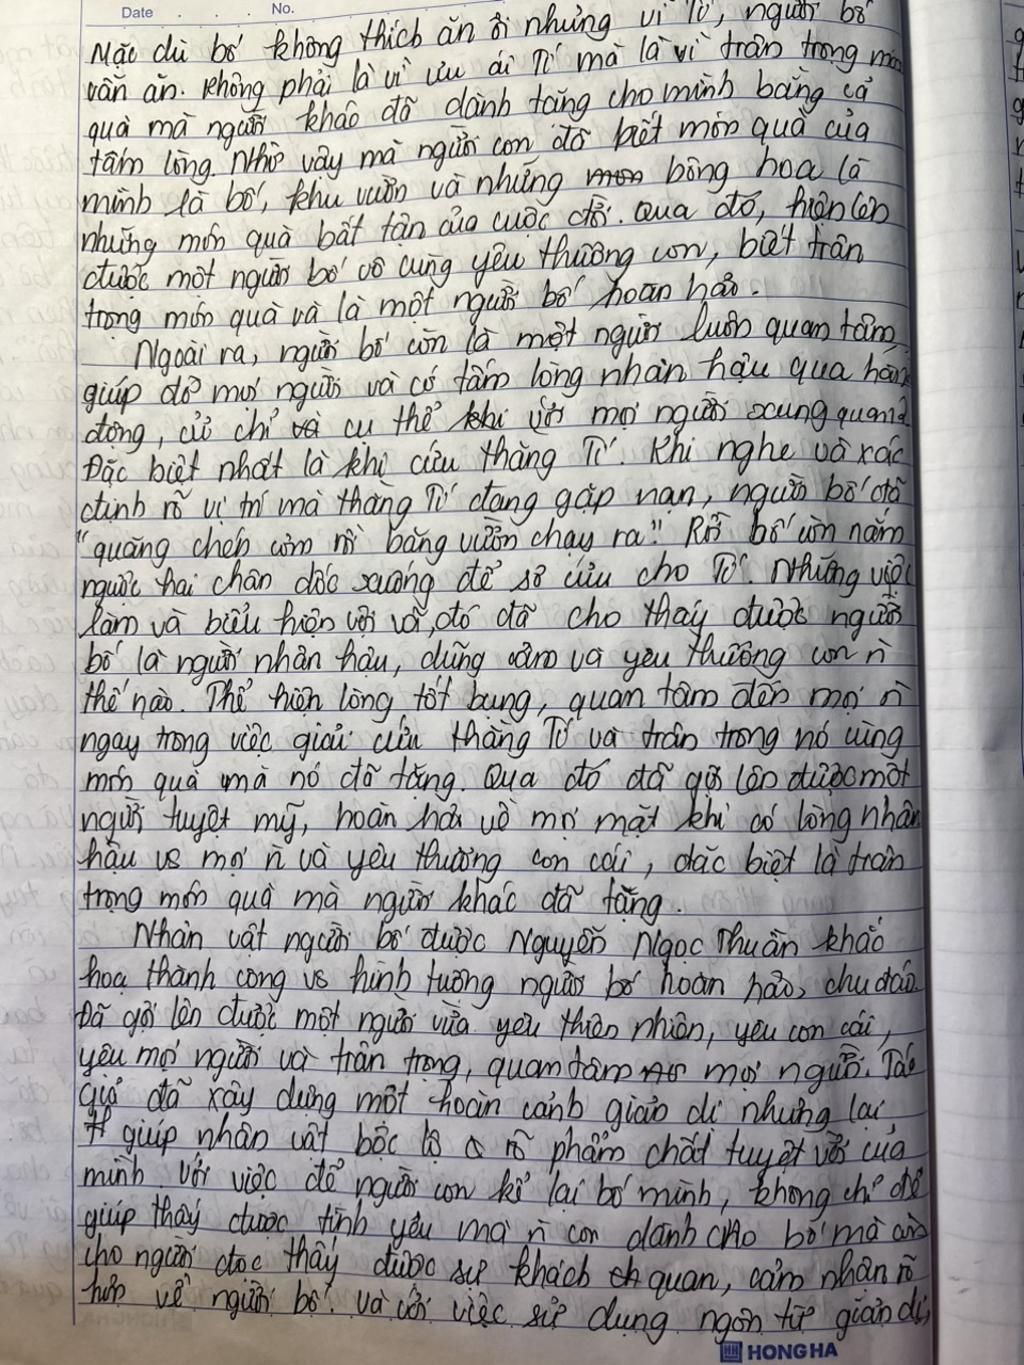 Date No.
Mặc dù bố không thích ăn ổi nhưng vì Tí, người bố
vẫn ăn. Không phải là vì ưu ái Tí mà là vì trân trọng món
quà mà người khác đã dành tặng cho mình bằng cả
tấm lòng. Nhờ vậy mà người con đã biết món quà của
mình là bố, khu vườn và những bông hoa là
những món quà bất tận của cuộc đời. Qua đó, hiện lên
được một người bố vô cùng yêu thương con, biết trân
trọng món quà và là một người bố hoàn hảo.
Ngoài ra, người bố còn là một người luôn quan tâm,
giúp đỡ mọi người và có tấm lòng nhân hậu qua hành
động, cử chỉ và cụ thể khi với mọi người xung quanh.
Đặc biệt nhất là khi cứu thằng Tí. Khi nghe và xác
định rõ vị trí mà thằng Tí đang gặp nạn, người bố đã
"quăng chén cơm rồi băng vườn chạy ra". Rồi bố còn nắm
ngược hai chân dốc xuống để sơ cứu cho Tí. Những việc
làm và biểu hiện vội vã, đó đã cho thấy được người
bố là người nhân hậu, dũng cảm và yêu thương con n
thế nào. Thể hiện lòng tốt bụng, quan tâm đến mọi n
ngay trong việc giải cứu thằng Tí và trân trọng nó cùng
món quà mà nó đã tặng. Qua đó đã gợi lên được một
người tuyệt mỹ, hoàn hảo về mọi mặt khi có lòng nhân
hậu vs mọi n và yêu thương con cái, đặc biệt là trân
trọng món quà mà người khác đã tặng.
Nhân vật người bố được Nguyễn Ngọc Thuần khắc
họa thành công vs hình tượng người bố hoàn hảo, chu đáo.
Đã gợi lên được một người vừa yêu thiên nhiên, yêu con cái,
yêu mọi người và trân trọng, quan tâm mọi người. Tác
giả đã xây dựng một hoàn cảnh giản dị nhưng lại
giúp nhân vật bộc lộ rõ phẩm chất tuyệt vời của
mình. Với việc để người con kể lại bố mình, không chỉ để
giúp thấy được tình yêu mà n con dành cho bố mà còn
cho người đọc thấy được sự khách quan, cảm nhận rõ
hơn về người bố. Và với việc sử dụng ngôn từ giản dị,
HH HONG HA